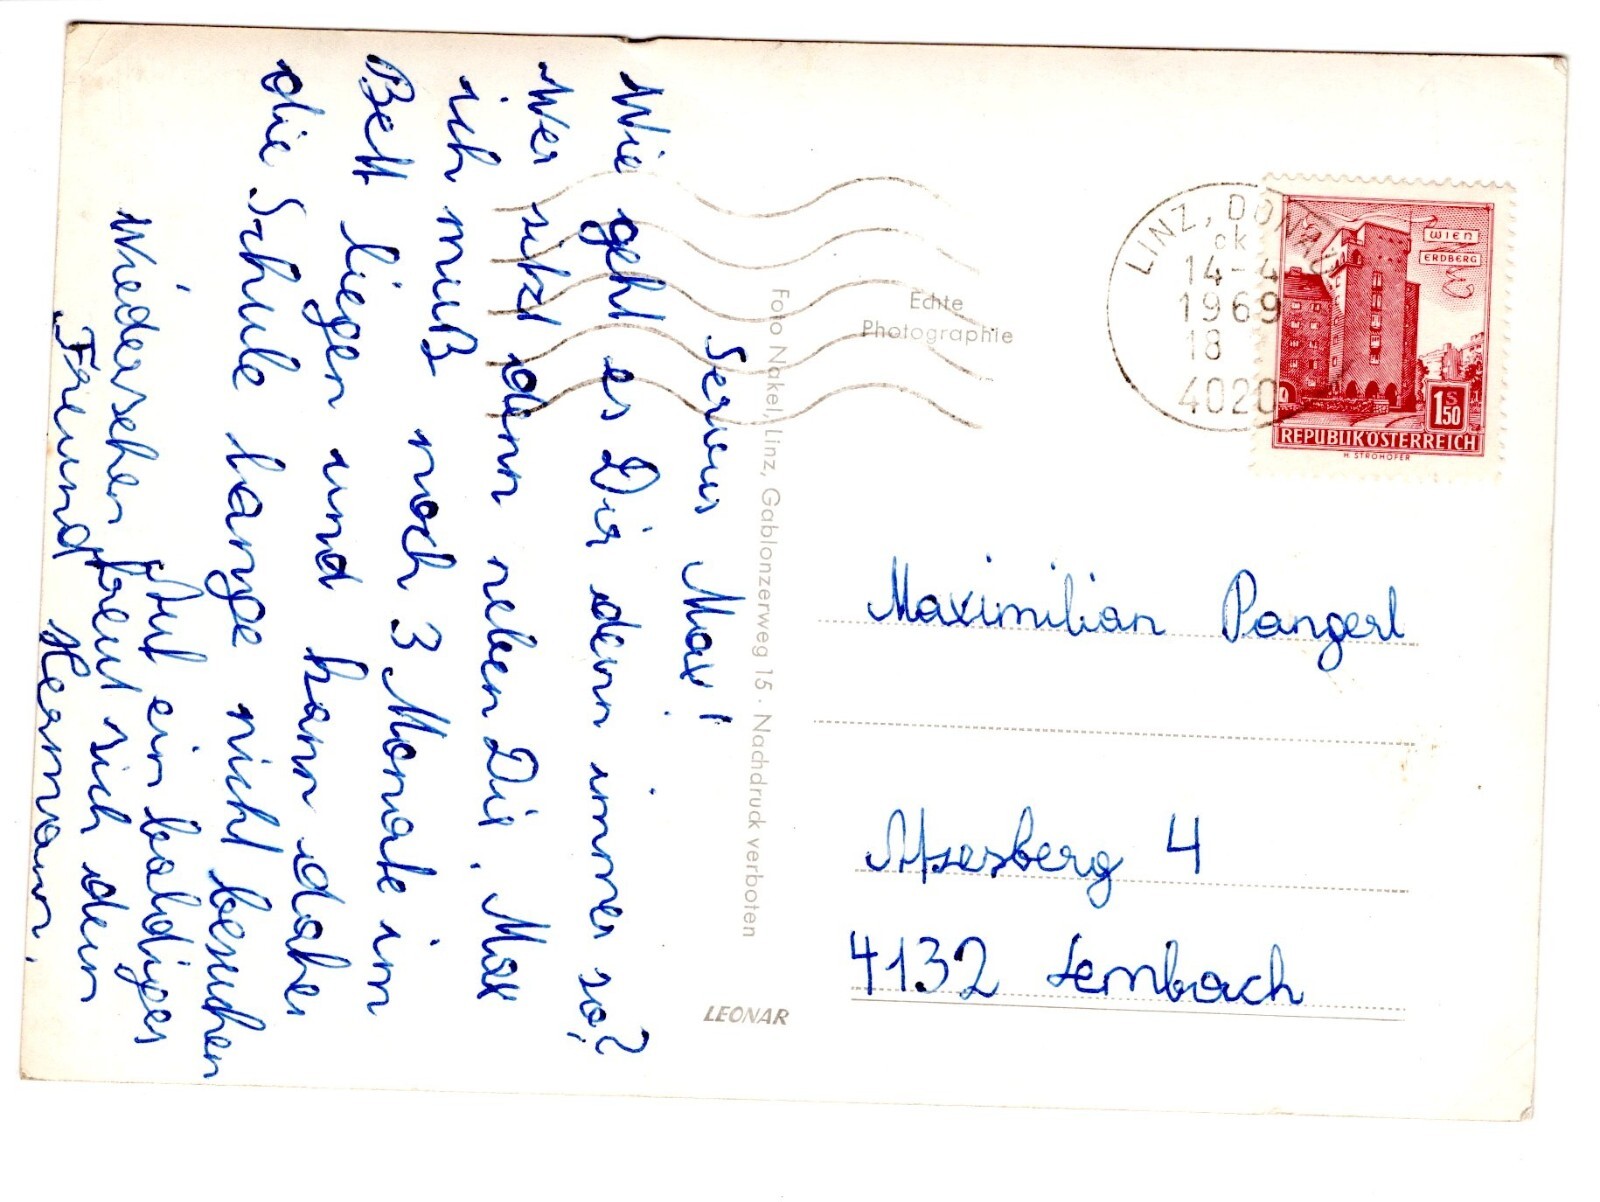 Servus Max!
Wie geht es Dir denn immer so?
Wer sitzt denn neben Dir, Max
ich muß noch 3 Monate im
Bett liegen und kann daher
die Schule lange nicht besuchen
Auf ein baldiges
Wiedersehen freut sich dein
Freund Hermann.
Foto Nakel, Linz, Gablonzerweg 15 · Nachdruck verboten
Echte
Photographie
LEONAR
LINZ, DONAU
ck
14-4
1969
18
4020
WIEN
ERDBERG
1 S 50
REPUBLIK ÖSTERREICH
H. STROHOFER
Maximilian Pangerl
4
4132 Lembach